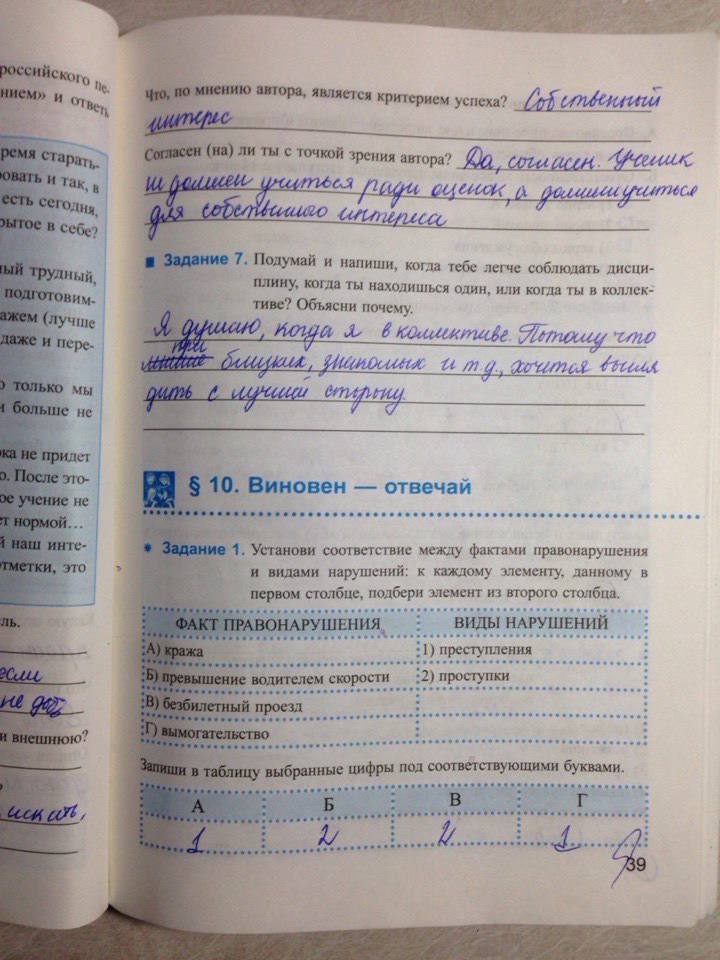 российского пе-
нием» и ответь
ремя старать-
ровать и так, в
есть сегодня,
рытое в себе?
ный трудный,
подготовим-
ажем (лучше
даже и пере-
о только мы
и больше не
ока не придет
о. После это-
ое учение не
ет нормой...
й наш инте-
отметки, это
ель.
если
не дать
и внешнюю?
?
искать,
Что, по мнению автора, является критерием успеха? Собственный
интерес
Согласен (на) ли ты с точкой зрения автора? Да, согласен. Ученик
не должен учиться ради оценок, а должен учиться
для собственного интереса
Задание 7. Подумай и напиши, когда тебе легче соблюдать дисци-
плину, когда ты находишься один, или когда ты в коллек-
тиве? Объясни почему.
Я думаю, когда я в коллективе. Потому что
при близких, знакомых и т.д., хочется выгля
деть с лучшей сторону.
§ 10. Виновен — отвечай
Задание 1. Установи соответствие между фактами правонарушения
и видами нарушений: к каждому элементу, данному в
первом столбце, подбери элемент из второго столбца.
ФАКТ ПРАВОНАРУШЕНИЯ ВИДЫ НАРУШЕНИЙ
А) кража 1) преступления
Б) превышение водителем скорости 2) проступки
В) безбилетный проезд
Г) вымогательство
Запиши в таблицу выбранные цифры под соответствующими буквами.
А Б В Г
1 2 2 1
39